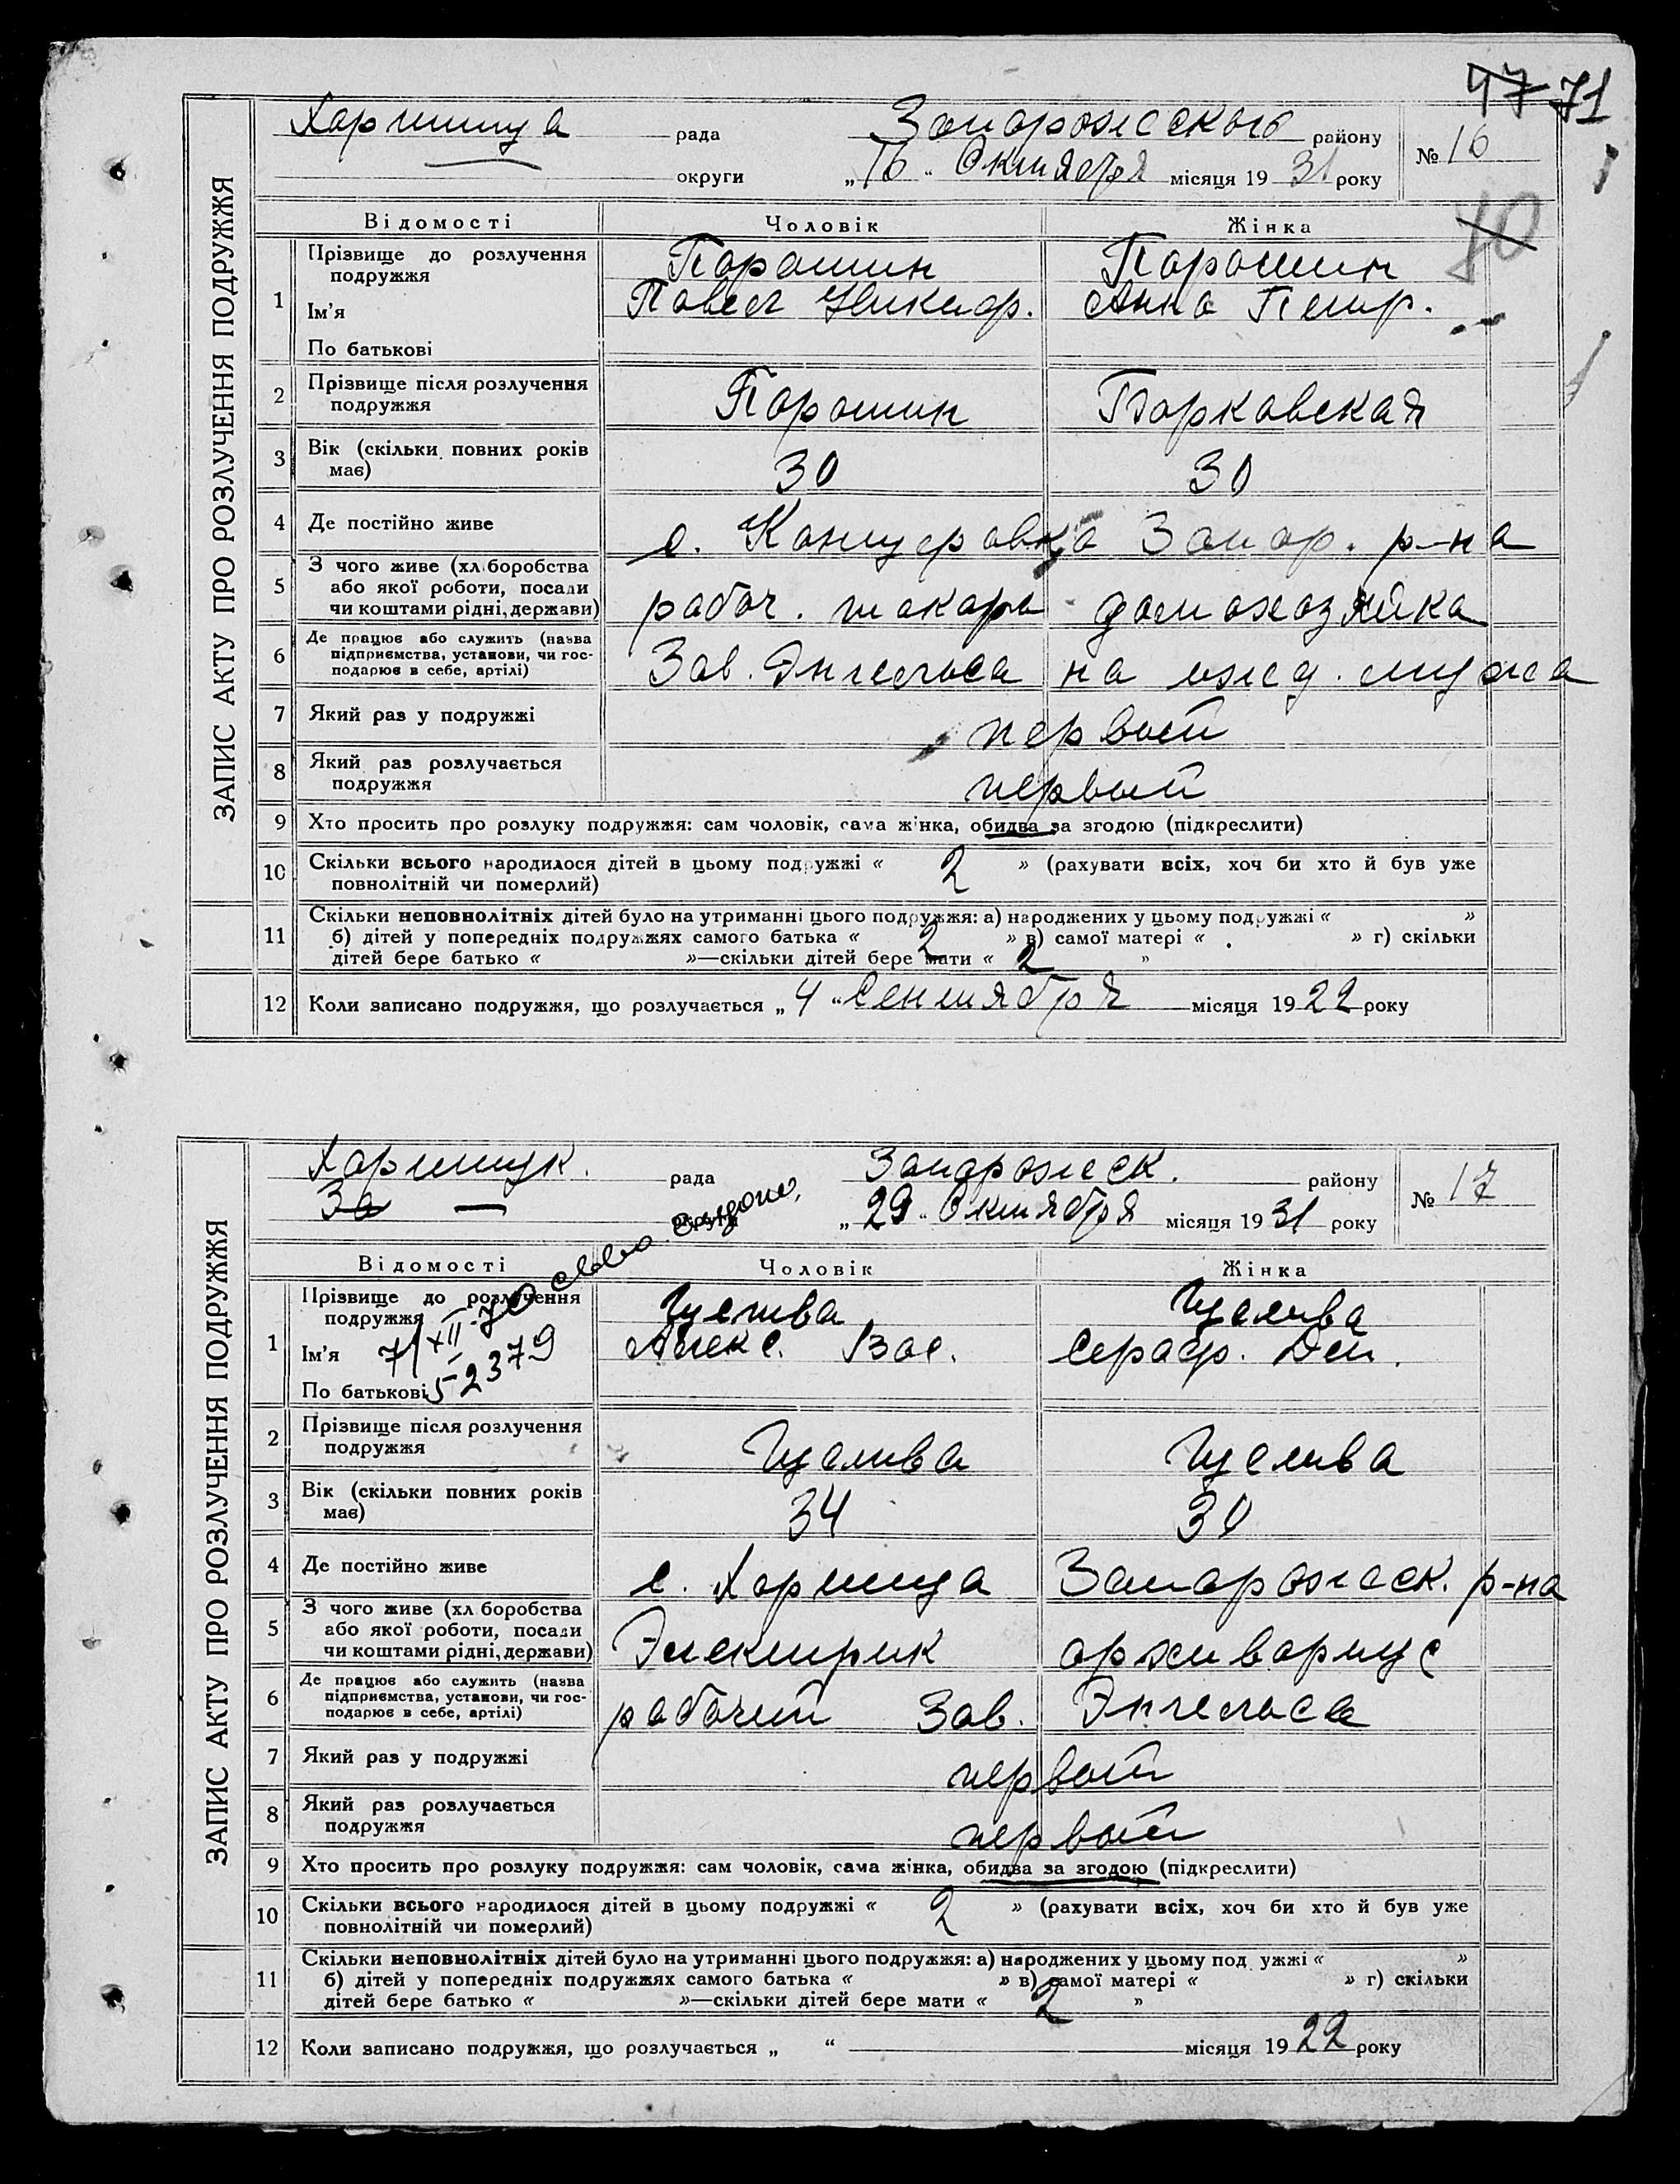 47 71
ЗАПИС АКТУ ПРО РОЗЛУЧЕННЯ ПОДРУЖЖЯ
Хортица рада Запорожского району № 16
округи „16“ Октября місяця 1931 року
70
Відомості Чоловік Жінка
1 Прізвище до розлучення подружжя Порошин Порошин
Ім'я Павел Никиф. Анна Петр.
По батькові
2 Прізвище після розлучення подружжя Порошин Борковская
3 Вік (скільки повних років має) 30 30
4 Де постійно живе с. Канцеровка Запор. р-на
5 З чого живе (хліборобства або якої роботи, посади чи коштами рідні, держави) рабоч. токарь домохозяйка
6 Де працює або служить (назва підприємства, установи, чи господарює в себе, артілі) Зав. Энгельса на ижд. мужа
7 Який раз у подружжі первый
8 Який раз розлучається подружжя первый
9 Хто просить про розлуку подружжя: сам чоловік, сама жінка, обидва за згодою (підкреслити)
10 Скільки всього народилося дітей в цьому подружжі « 2 » (рахувати всіх, хоч би хто й був уже
повнолітній чи померлий)
11 Скільки неповнолітніх дітей було на утриманні цього подружжя: а) народжених у цьому подружжі « »
б) дітей у попередніх подружжях самого батька « 2 » в) самої матері « . » г) скільки
дітей бере батько « »—скільки дітей бере мати « 2 »
12 Коли записано подружжя, що розлучається „ 4 “ Сентября місяця 1922 року
ЗАПИС АКТУ ПРО РОЗЛУЧЕННЯ ПОДРУЖЖЯ
Хортицк. рада Запорожск. району № 17
За округи „29“ Октября місяця 1931 року
Відомості Чоловік Жінка
1 Прізвище до розлучення подружжя Цемва Цемва
Ім'я Алекс. Вас. Сераф. Дем.
По батькові 52379
2 Прізвище після розлучення подружжя Цемва Цемва
3 Вік (скільки повних років має) 34 30
4 Де постійно живе с. Хортица Запорожск. р-на
5 З чого живе (хліборобства або якої роботи, посади чи коштами рідні, держави) Электрик архивариус
6 Де працює або служить (назва підприємства, установи, чи господарює в себе, артілі) рабочий Зав. Энгельса
7 Який раз у подружжі первый
8 Який раз розлучається подружжя первый
9 Хто просить про розлуку подружжя: сам чоловік, сама жінка, обидва за згодою (підкреслити)
10 Скільки всього народилося дітей в цьому подружжі « 2 » (рахувати всіх, хоч би хто й був уже
повнолітній чи померлий)
11 Скільки неповнолітніх дітей було на утриманні цього подружжя: а) народжених у цьому подружжі « »
б) дітей у попередніх подружжях самого батька « » в) самої матері « » г) скільки
дітей бере батько « »—скільки дітей бере мати « 2 »
12 Коли записано подружжя, що розлучається „ “ місяця 1922 року